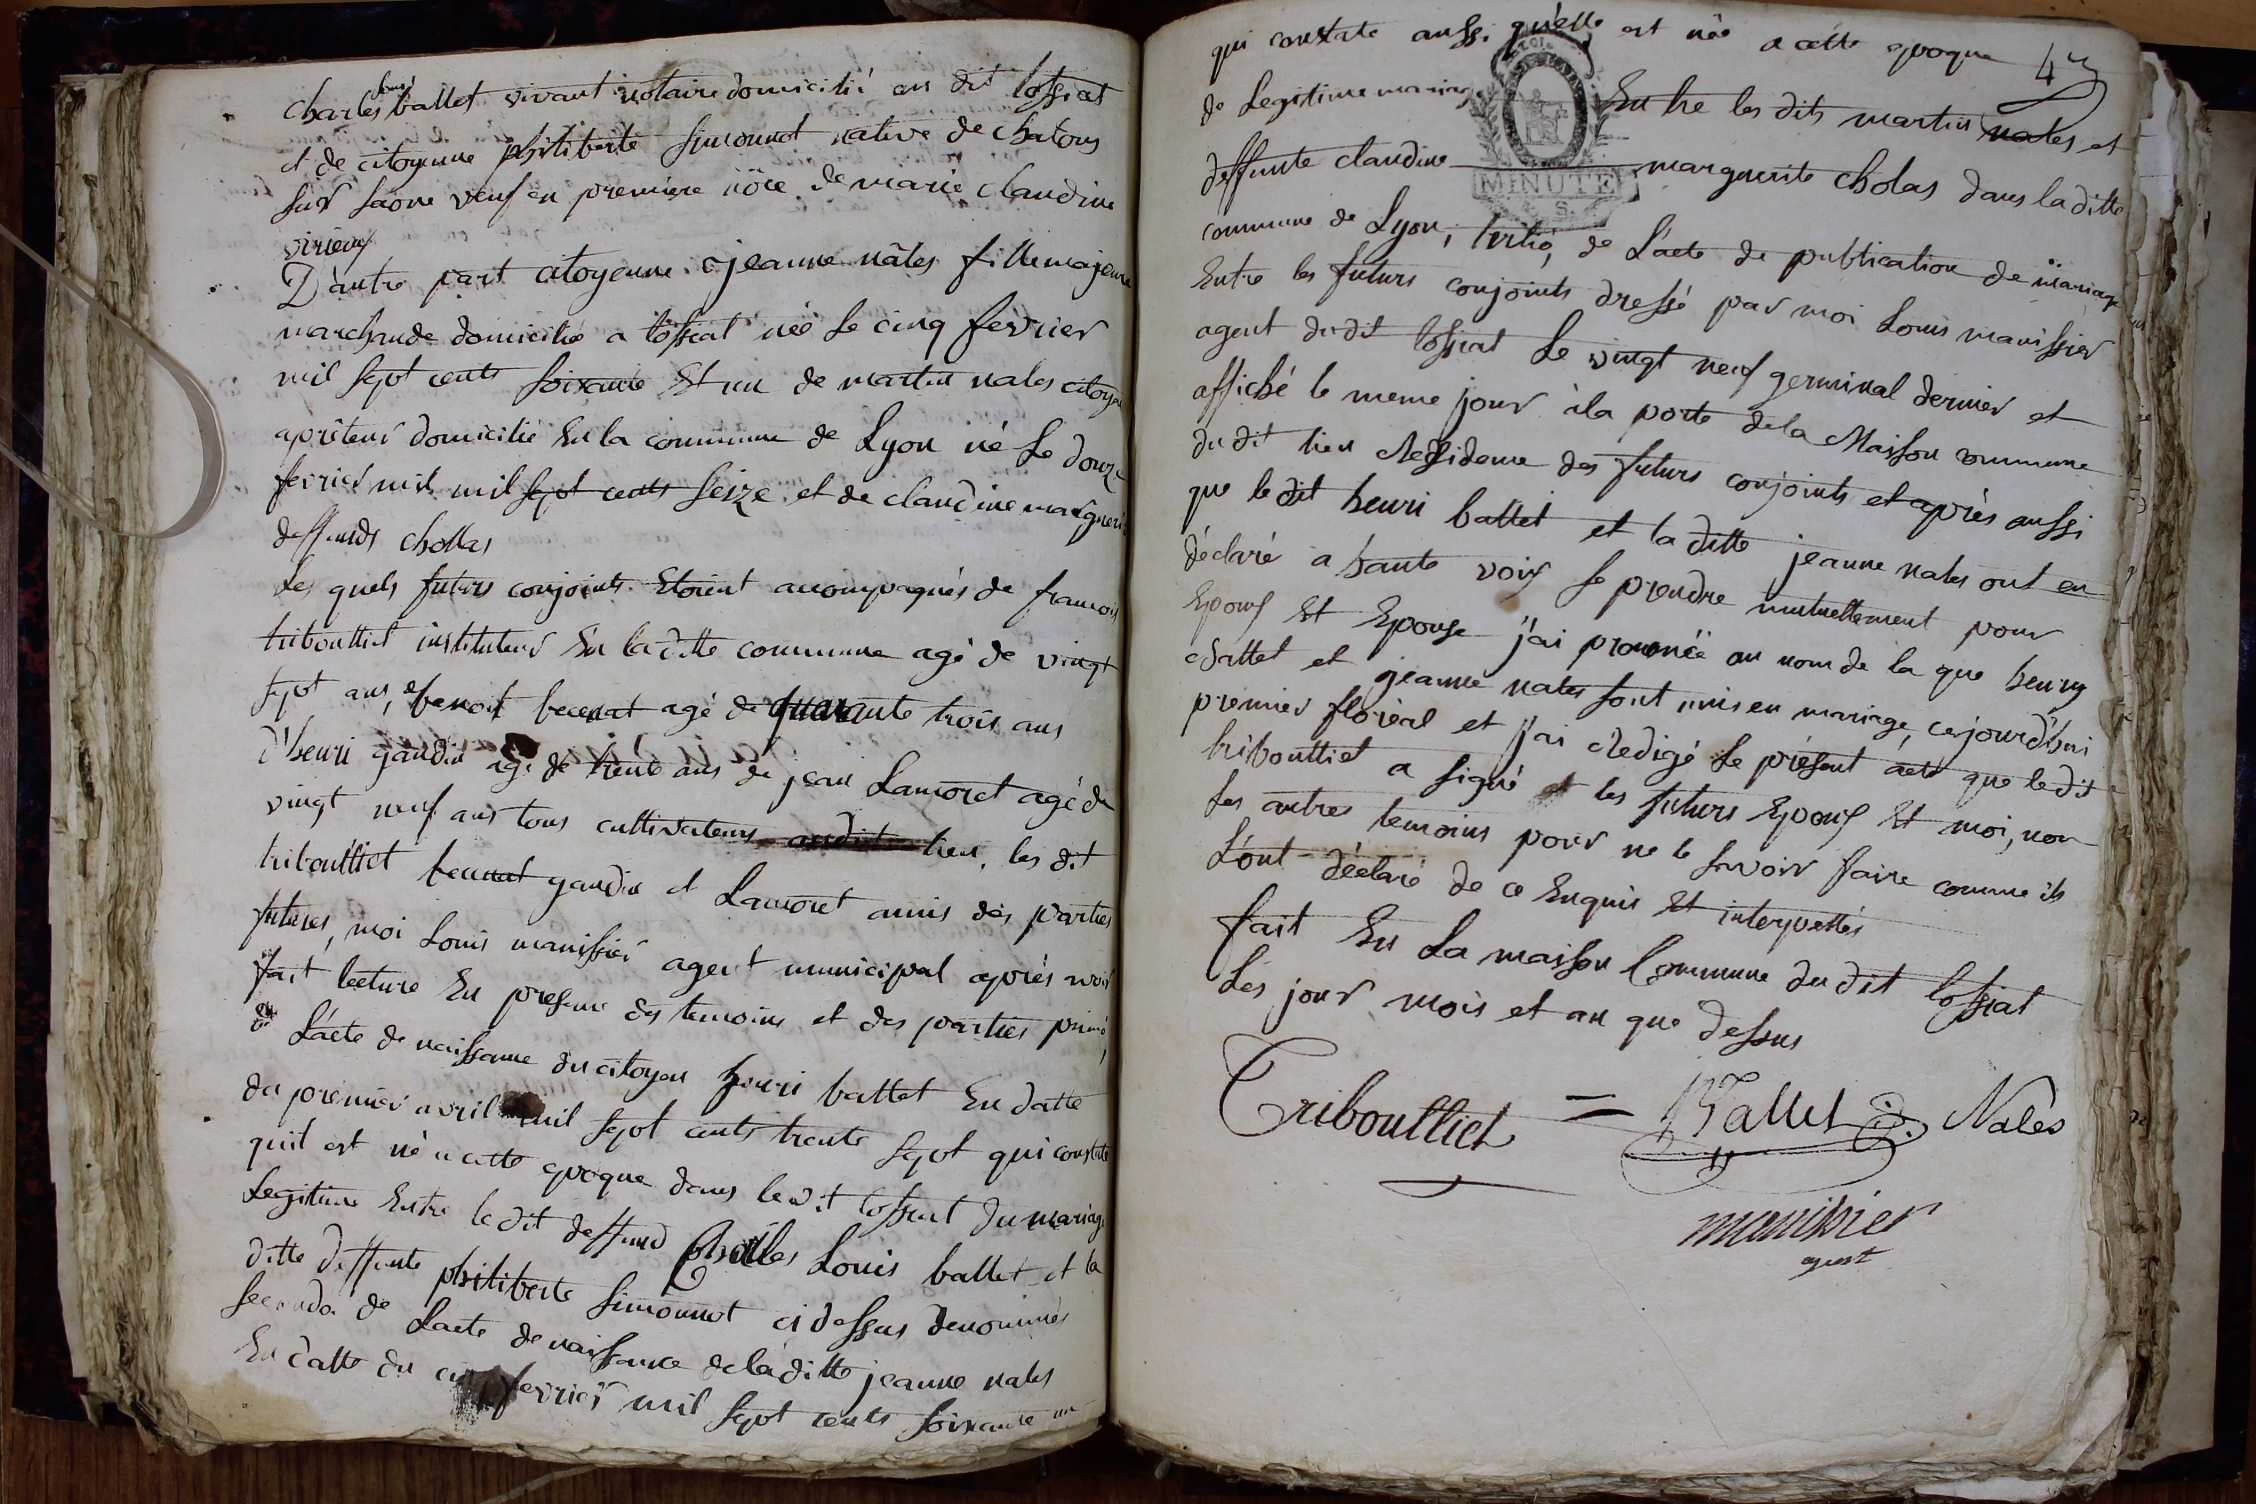 charles louis ballet vivant notaire domicilié au dit lossiat
et de citoyenne philiberte simonnot native de chalons
sur saone veuf en premiere nôce de marie claudine
virieux
D'autre part citoyenne jeanne nâles fille majeure
marchande domicilié a lossiat née le cinq fevrier
mil sept cents soixante Et un de martin nales citoyen
aprêteur domicilié En la commune de Lyon né le douze
fevrier mil mil sept cents seize et de claudine marguerite
deffunds chollas
Les quels futurs conjoints Etoient accompagnés de francois
tribouttiet instituteur En la ditte commune agé de vingt
sept ans, benoit becenat agé de quarante trois ans
d'henri gaudin agé de trente ans de jean Lamoret agé de
vingt neuf ans tous cultivateurs audit lieu, les dit
tribouttiet becenat gaudin et Lamoret amis des parties
futures, moi Louis manissier agent municipal après avoir
fait lecture En presence des temoins et des parties primò,
de L'acte de naissance du citoyen henri ballet En datte
du premier avril mil sept cents trente sept qui constate
quil est né a cette epoque dans le dit lossiat du mariage
Legitime Entre le dit deffund Charles Louis ballet et la
ditte deffunte philiberte simonnot ci dessus denommés
secundo de Lacte de naissance de la ditte jeanne nales
En datte du cinq fevrier mil sept cents soixante un
4
qui constate aussi qu'elle est née a cette epoque
de Legitime mariage Entre les dits martin nales et
deffunte claudine marguerite cholas dans la ditte
MINUTE
commune de Lyon, tertiò, de L'acte de publication de mariage
Entre les futurs conjoints dressé par moi Louis manissier
agent du dit lossiat Le vingt neuf germinal dernier et
affiché le meme jour à la porte de la Maison commune
du dit lieu Residence des futurs conjoints et après aussi
que le dit henri ballet et la ditte jeanne nales ont eu
déclaré a haute voix se prendre mutuellement pour
Epoux Et Epouse j'ai prononcé au nom de la que henry
Ballet et jeanne nales sont unis en mariage, cejourd'hui
premier floréal et j'ai Redigé le présent acte que ledit
tribouttiet a signé et les futurs Epoux Et moi, non
Les autres temoins pour ne le savoir faire comme ils
L'ont déclaré de ce Enquis Et interpellés
fait En La maison Commune du dit lossiat
Les jour mois et an que dessus
Tribouttiet = Ballet Nalès
manissier
agent